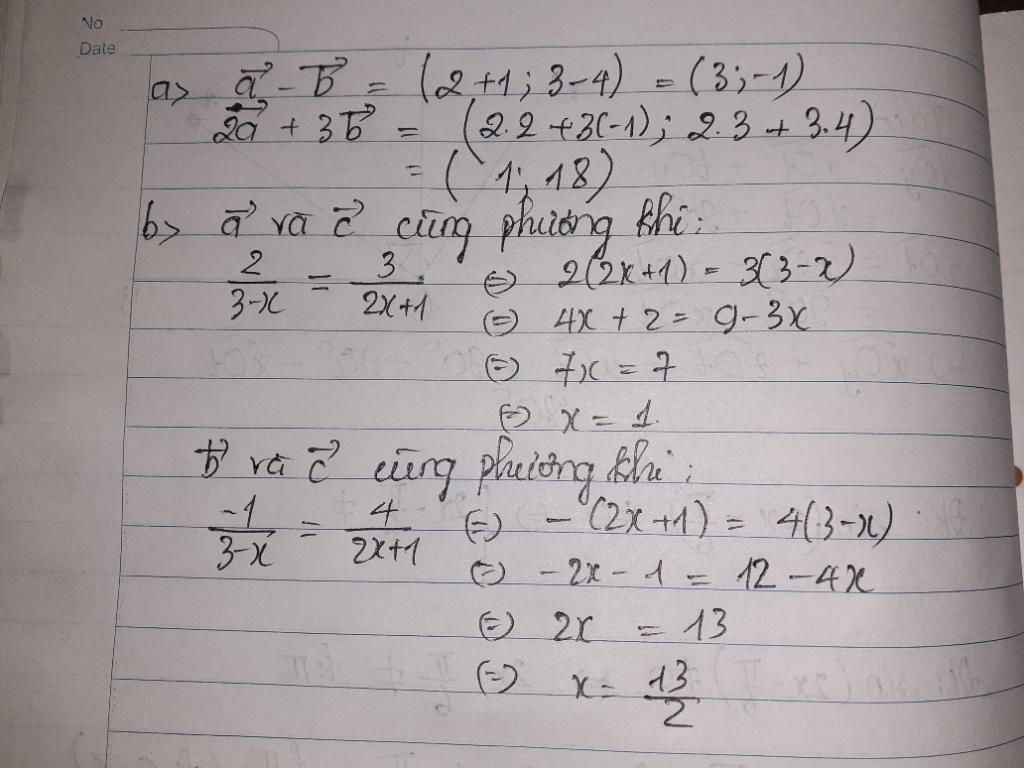 No
Date
a> a⃗ - b⃗ = (2+1; 3-4) = (3;-1)
2a⃗ + 3b⃗ = (2.2+3(-1); 2.3+3.4)
= (1; 18)
b> a⃗ và c⃗ cùng phương khi:
2/(3-x) = 3/(2x+1) (=) 2(2x+1) = 3(3-x)
(=) 4x + 2 = 9-3x
(=) 7x = 7
(=) x = 1.
b⃗ và c⃗ cùng phương khi:
-1/(3-x) = 4/(2x+1) (=) -(2x+1) = 4(3-x)
(=) -2x - 1 = 12 - 4x
(=) 2x = 13
(=) x = 13/2